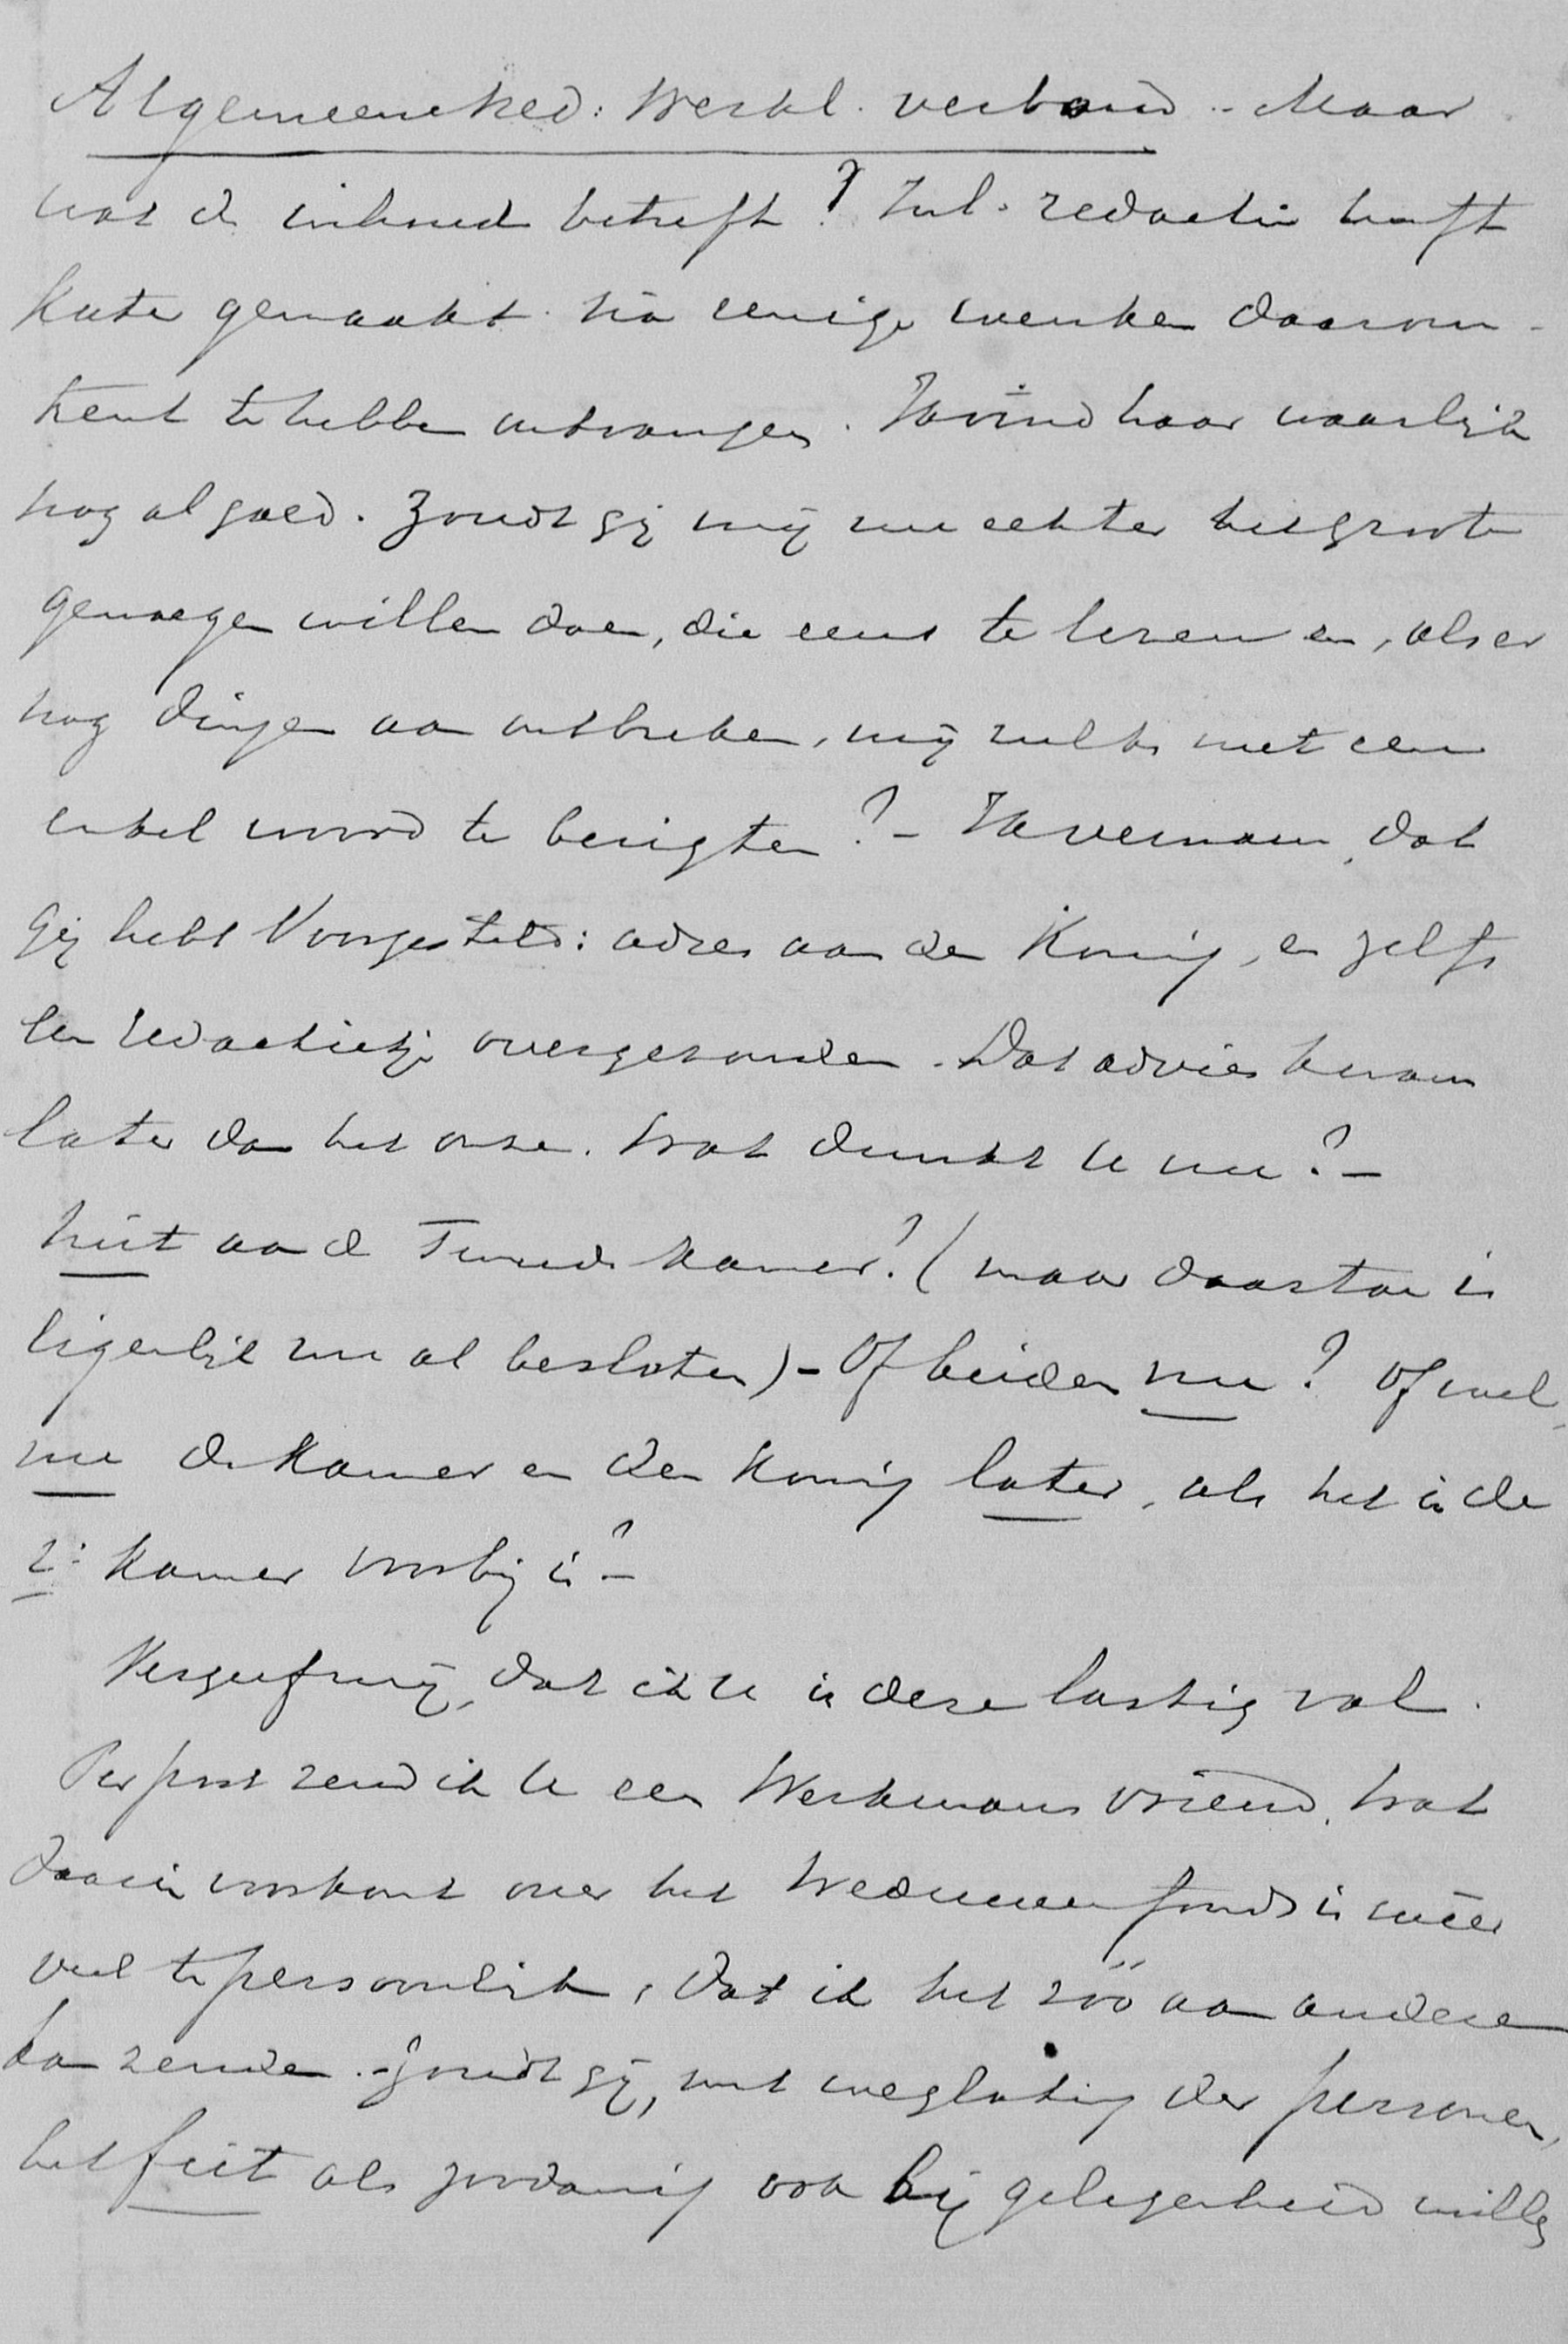 Algemeene Ned: Werkl. verbond. - Maar
wat de inhoud betreft? Zul. redactie heeft
Kater gemaakt na eenige wenken daarom-
trent te hebben ontvangen. Ik vind haar waarlijk
nog al goed. Zoudt gij mij nu echter het groote
genoegen willen doen, die eens te lezen en, als er
nog dingen aan ontbreken, mij zulks met een
enkel woord te berigten? - Ik vernam, dat
Gij hebt Voorgesteld: adres aan den Koning, en zelfs
een redactietje overgezonden. Dat advies kwam
later dan het onze. Wat dunkt U nu? -
Niet aan de Tweede Kamer? (maar daartoe is
eigenlijk nu al besloten) - Of beiden nu? Of wel,
nu de Kamer en den Koning later, als het in de
2e Kamer voorbij is? -
Vergeef mij, dat ik U in deze lastig val.
Per post zend ik U een Werkmans vriend. Wat
daarin voorkomt over het Weduwenfonds is weêr
veel te persoonlijk, dat ik het zóó aan anderen
kan zenden. - Zoudt gij, met weglating der personen,
het feit als zoodanig ook bij gelegenheid willen